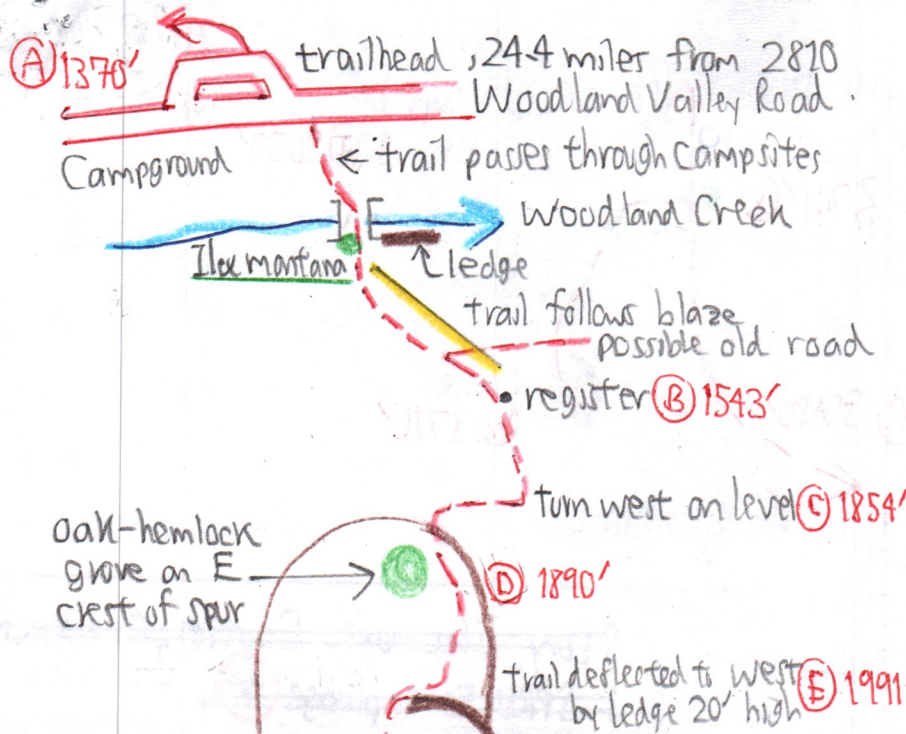 Ⓐ 1370'
trailhead, 24.4 miles from 2810
Woodland Valley Road.
Campground
← trail passes through Campsites
Woodland Creek
Ilex montana
ledge
trail follows blaze
possible old road
register Ⓑ 1543'
turn west on level Ⓒ 1854'
oak-hemlock
grove on E
crest of spur
Ⓓ 1890'
trail deflected to west Ⓔ 1991
by ledge 20' high